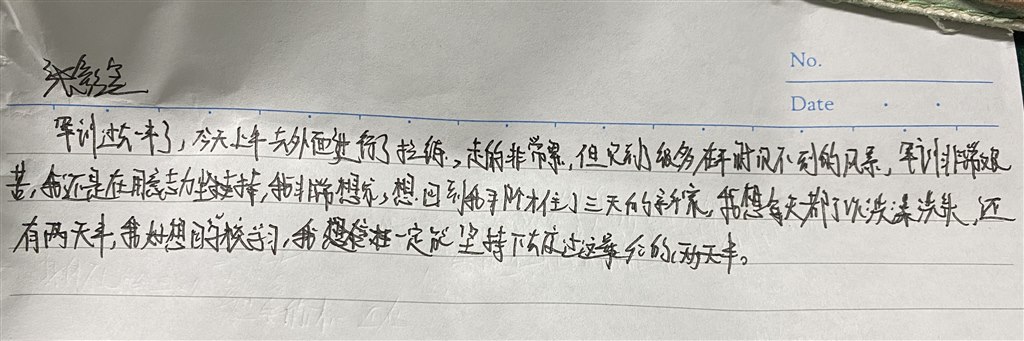 No.
Date
军训过去一半了，今天上午去外面进行了拉练，走的非常累，但见到了很多在平时见不到的风景，军训非常艰
苦，我还是在用意志力坚持，我非常想家，想回到我才住了三天的新家，我想每天都可以洗澡洗头，还
有两天半，我好想回学校学习，我相信一定能坚持下去度过这最后的两天半。